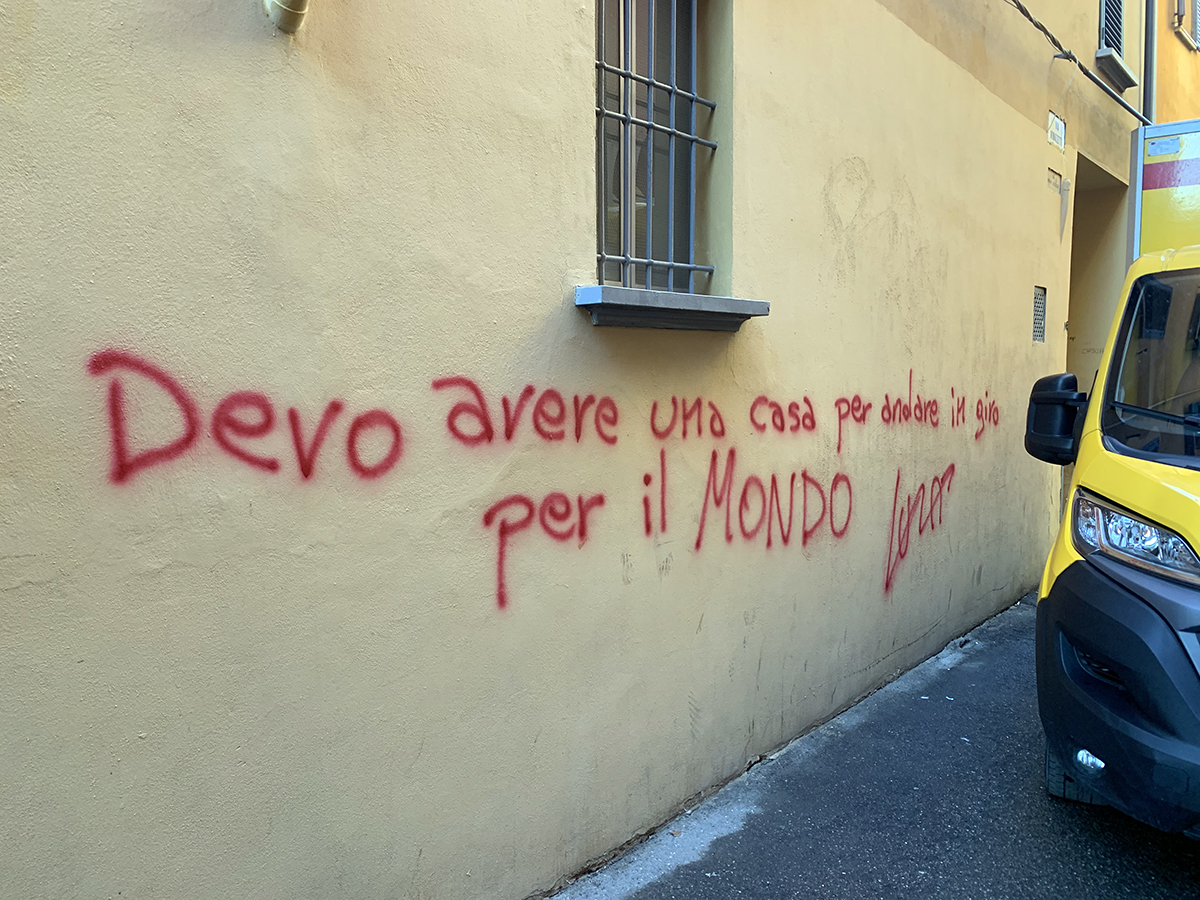 Devo avere una casa per andare in giro
per il MONDO